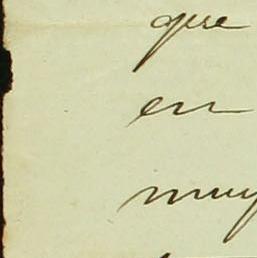 que
en
muy